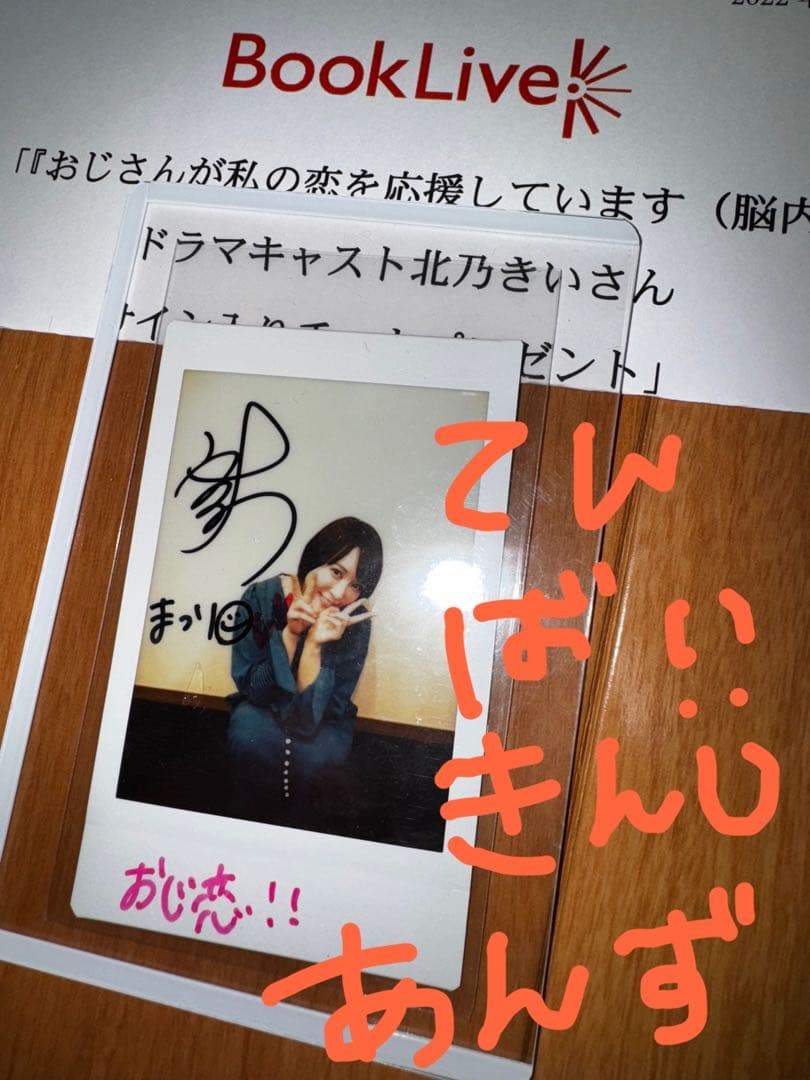 2022
BookLive!
「『おじさんが私の恋を応援しています（脳内
ドラマキャスト北乃きいさん
サイン入りチェキプレゼント」
まつり
おじ恋!!
てん
ばい
きんし
あんず